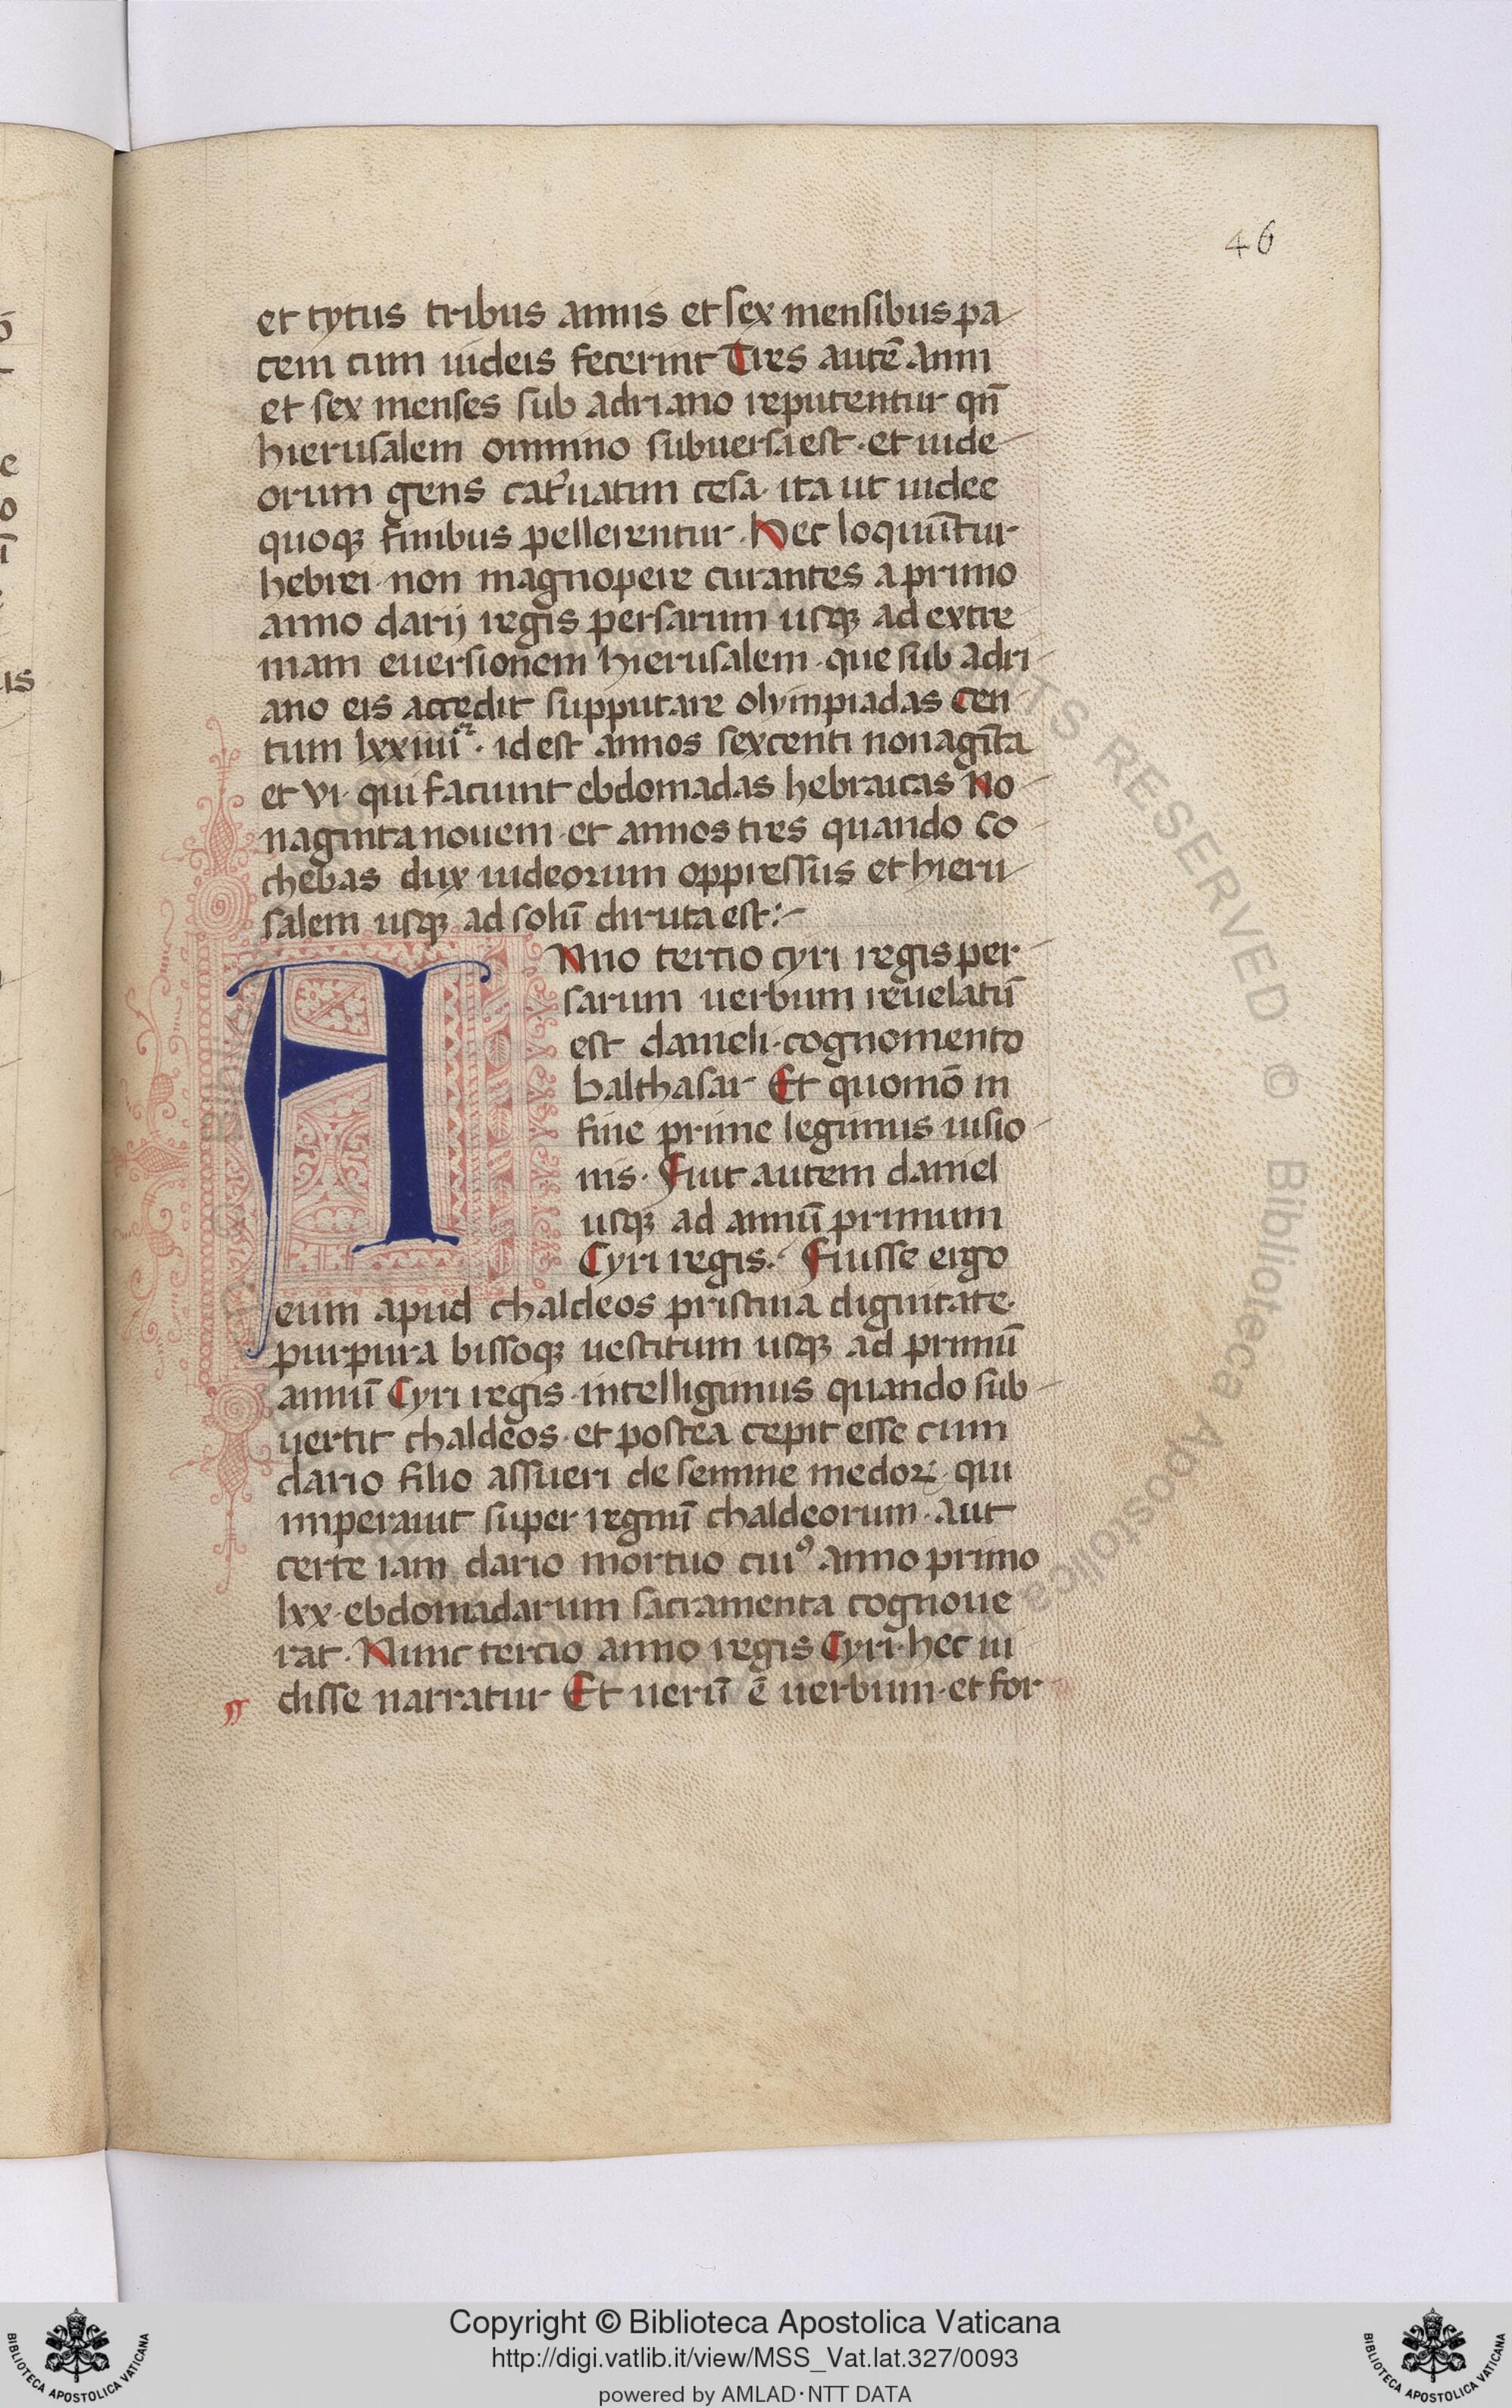 46
et tytus tribus annis et sex mensibus pa
cem cum iudeis fecerint Tres autē anni
et sex menses sub adriano reputentur qn̄
hierusalem omnino subuersa est · et iude
orum gens cat̉uatim cesa · ita ut iudee
quoqȝ finibus pellerentur · Hec loquūtur
hebrei · non magnopere curantes a primo
anno darij regis persarum usqȝ ad extre
mam euersionem hierusalem · que sub adri
ano eis accedit supputare olympiadas Cen
tum lxxiiii · id est annos sexcenti nonagīta
et vi · qui faciunt ebdomadas hebraicas No
naginta nouem · et annos tres quando co
chebas dux iudeorum oppressus et hieru
salem usqȝ ad solū diruta est :
ANno tertio cyri regis per
sarum uerbum reuelatū
est danieli · cognomento
balthasar Et quomō in
fine prime legimus uisio
nis · Fuit autem daniel
usqȝ ad annū primum
Cyri regis · Fuisse ergo
eum apud chaldeos pristina dignitate ·
purpura bissoqȝ uestitum usqȝ ad primū
annū Cyri regis · intelligimus quando sub
uertit chaldeos · et postea cepit esse cum
dario filio assueri de semine medoꝝ · qui
imperauit super regnū chaldeorum · aut
certe iam dario mortuo cuiꝰ anno primo
lxx · ebdomadarum sacramenta cognoue
rat · Nunc tercio anno regis Cyri · hec ui
disse narratur Et uerū ē uerbum · et for
Copyright © Biblioteca Apostolica Vaticana
http://digi.vatlib.it/view/MSS_Vat.lat.327/0093
powered by AMLAD·NTT DATA